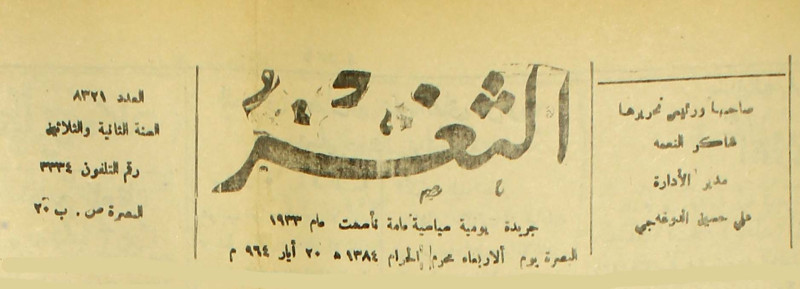 صاحبها ورئيس تحريرها
شاكر النعمه
مدير الأدارة
علي حسين
الثغر
جريدة يومية سياسية عامة تأسست عام ١٩٣٣
البصرة يوم الاربعاء محرم الحرام ١٣٨٤ ه ٢٠ أيار ٩٦٤ م
العدد ٨٣٢١
السنة الثانية والثلاثين
رقم التلفون ٣٣٣٤
البصرة ص . ب ٢٠